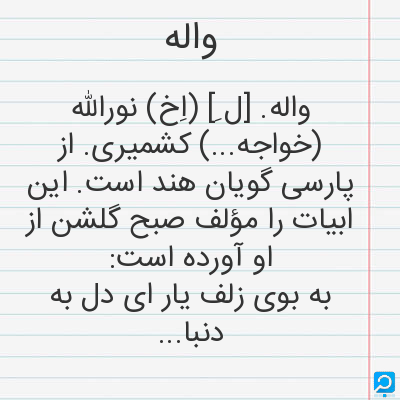 واله
واله. [ل ِ] (اِخ) نورالله
(خواجه...) کشمیری. از
پارسی گویان هند است. این
ابیات را مؤلف صبح گلشن از
او آورده است:
به بوی زلف یار ای دل به
دنبا...